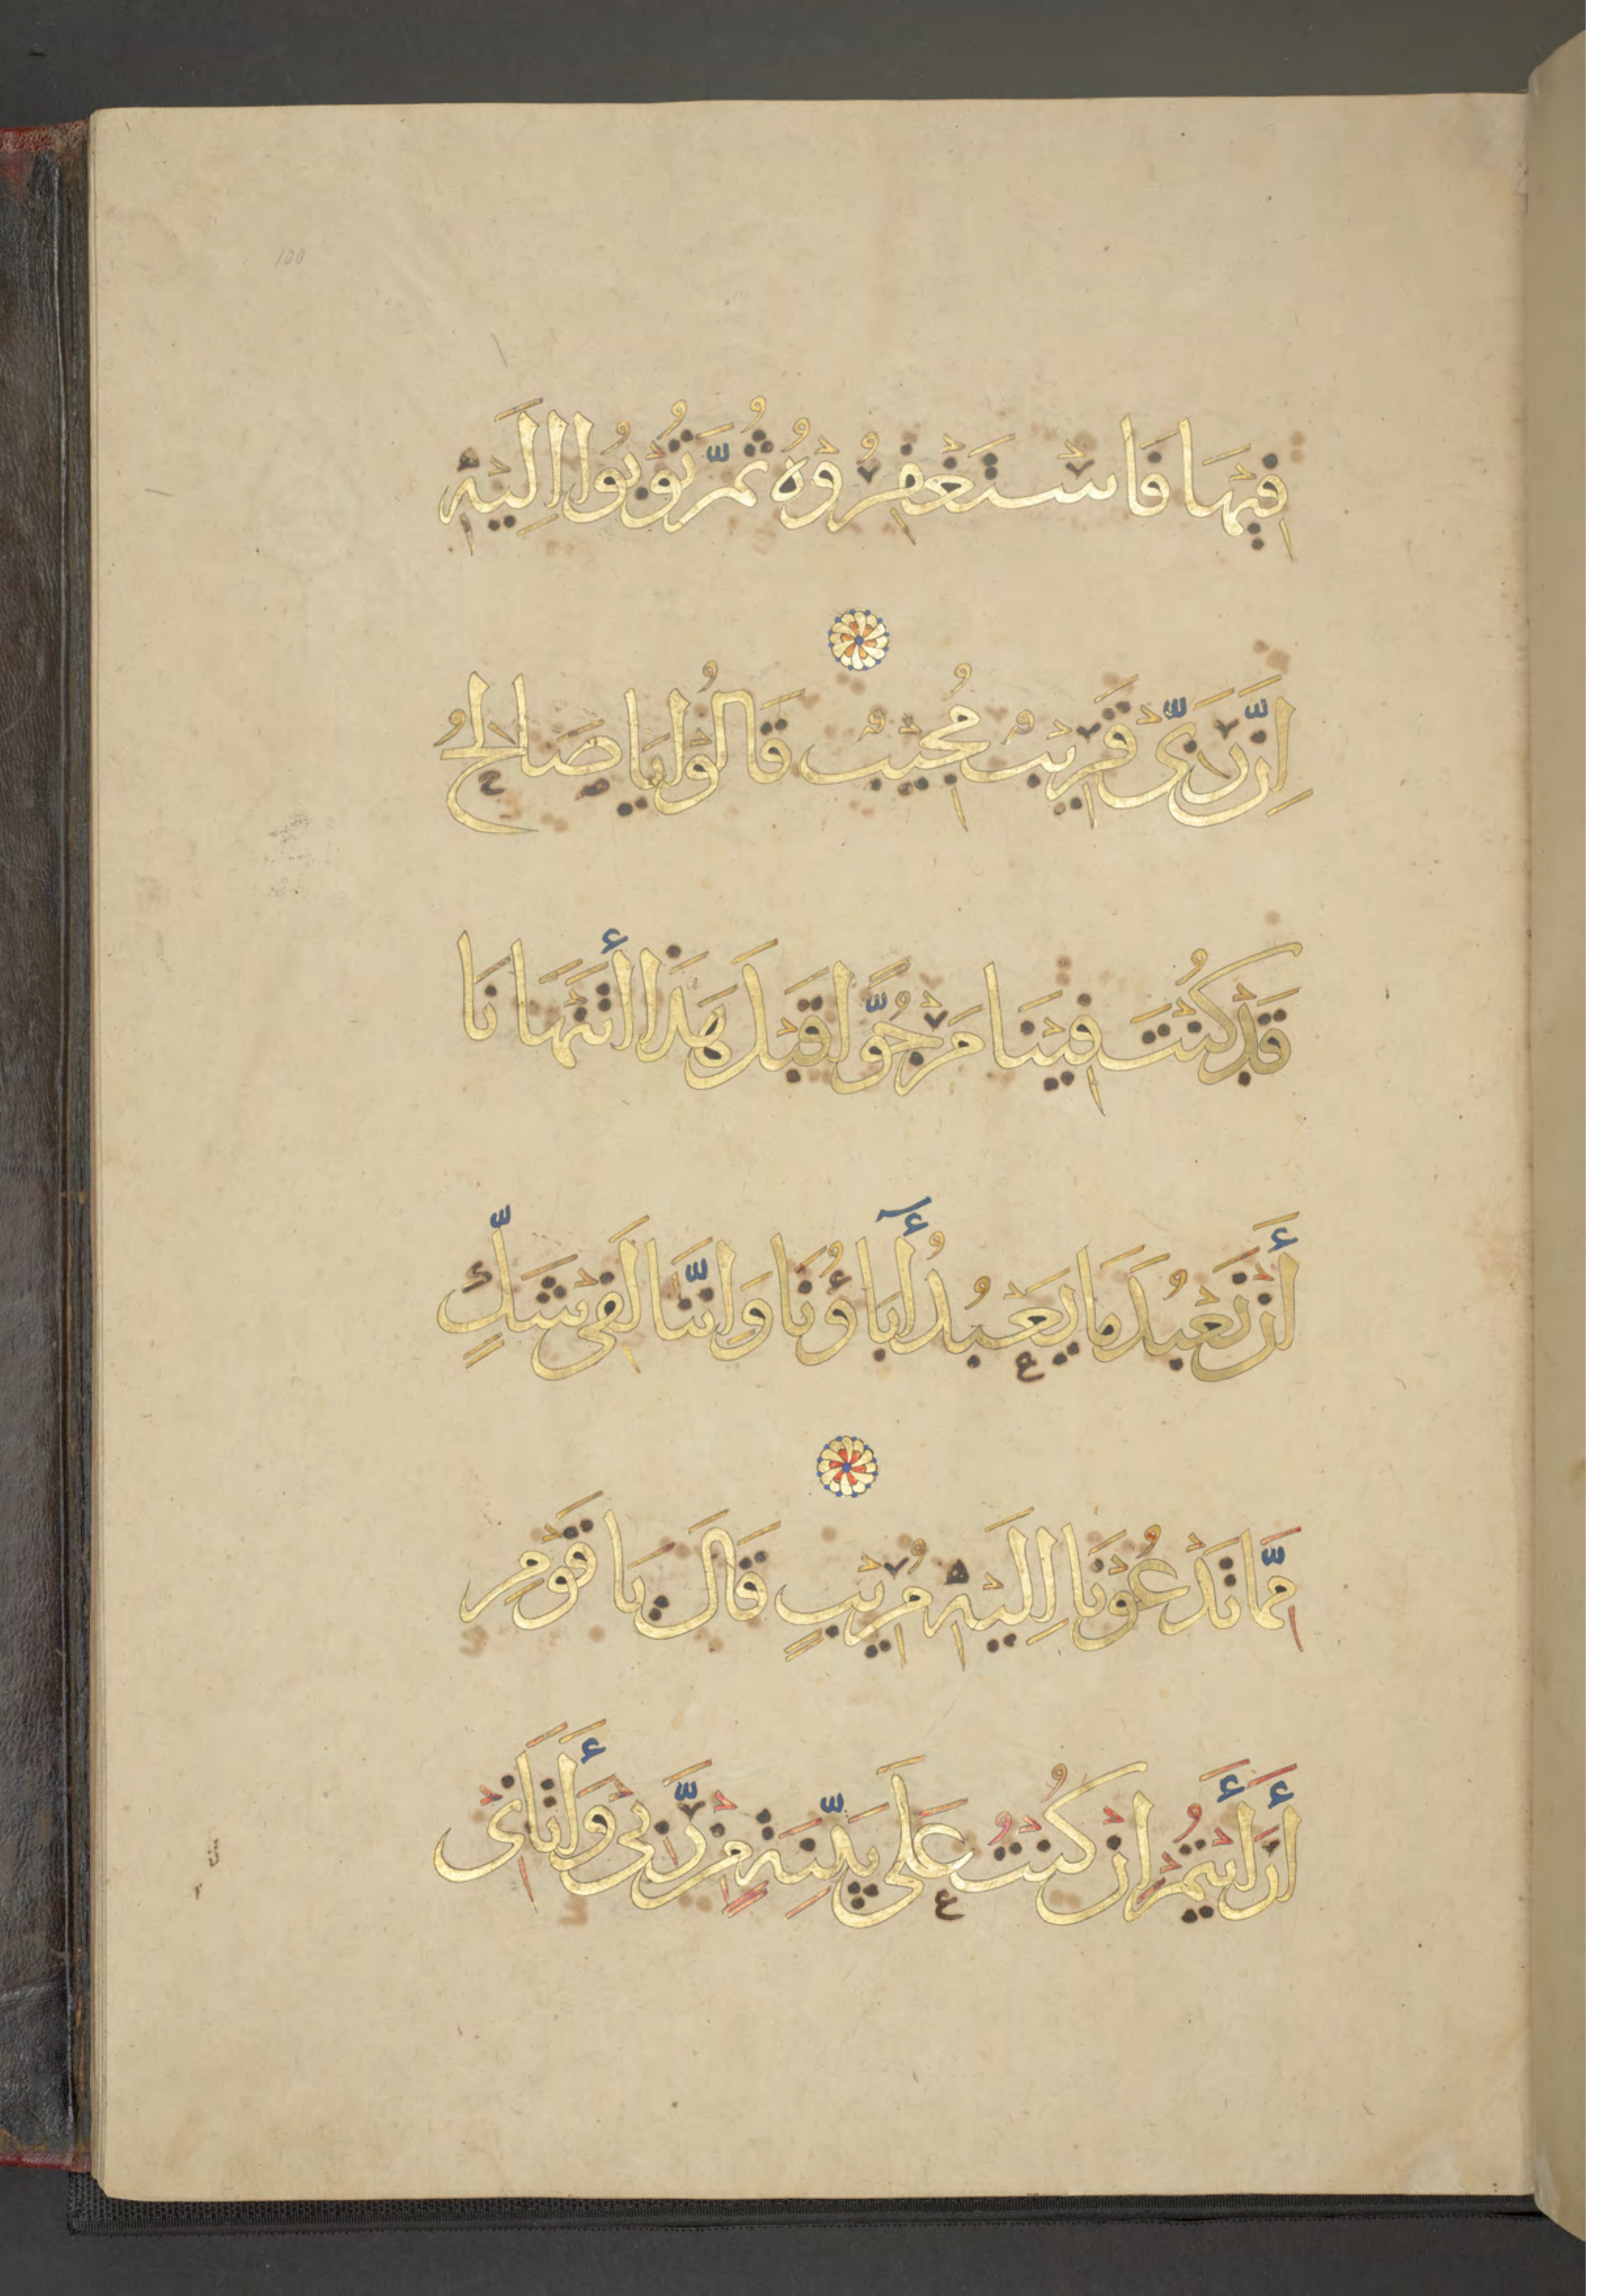 100
فِيْهَا فَاسْتَغْفِرُوْهُ ثُمَّ تُوْبُوْا اِلَيْهِ
اِنَّ رَبِّيْ قَرِيْبٌ مُجِيْبٌ قَالُوْا يَا صَالِحُ
قَدْ كُنْتَ فِيْنَا مَرْجُوًّا قَبْلَ هَذَا أَتَنْهَانَا
أَنْ نَعْبُدَ مَا يَعْبُدُ أٓبَاؤُنَا وَاِنَّنَا لَفِيْ شَكٍّ
مِمَّا تَدْعُوْنَا اِلَيْهِ مُرِيْبٍ قَالَ يَا قَوْمِ
أَرَأَيْتُمْ اِنْ كُنْتُ عَلَى بَيِّنَةٍ مِنْ رَبِّيْ وَأَتَانِيْ